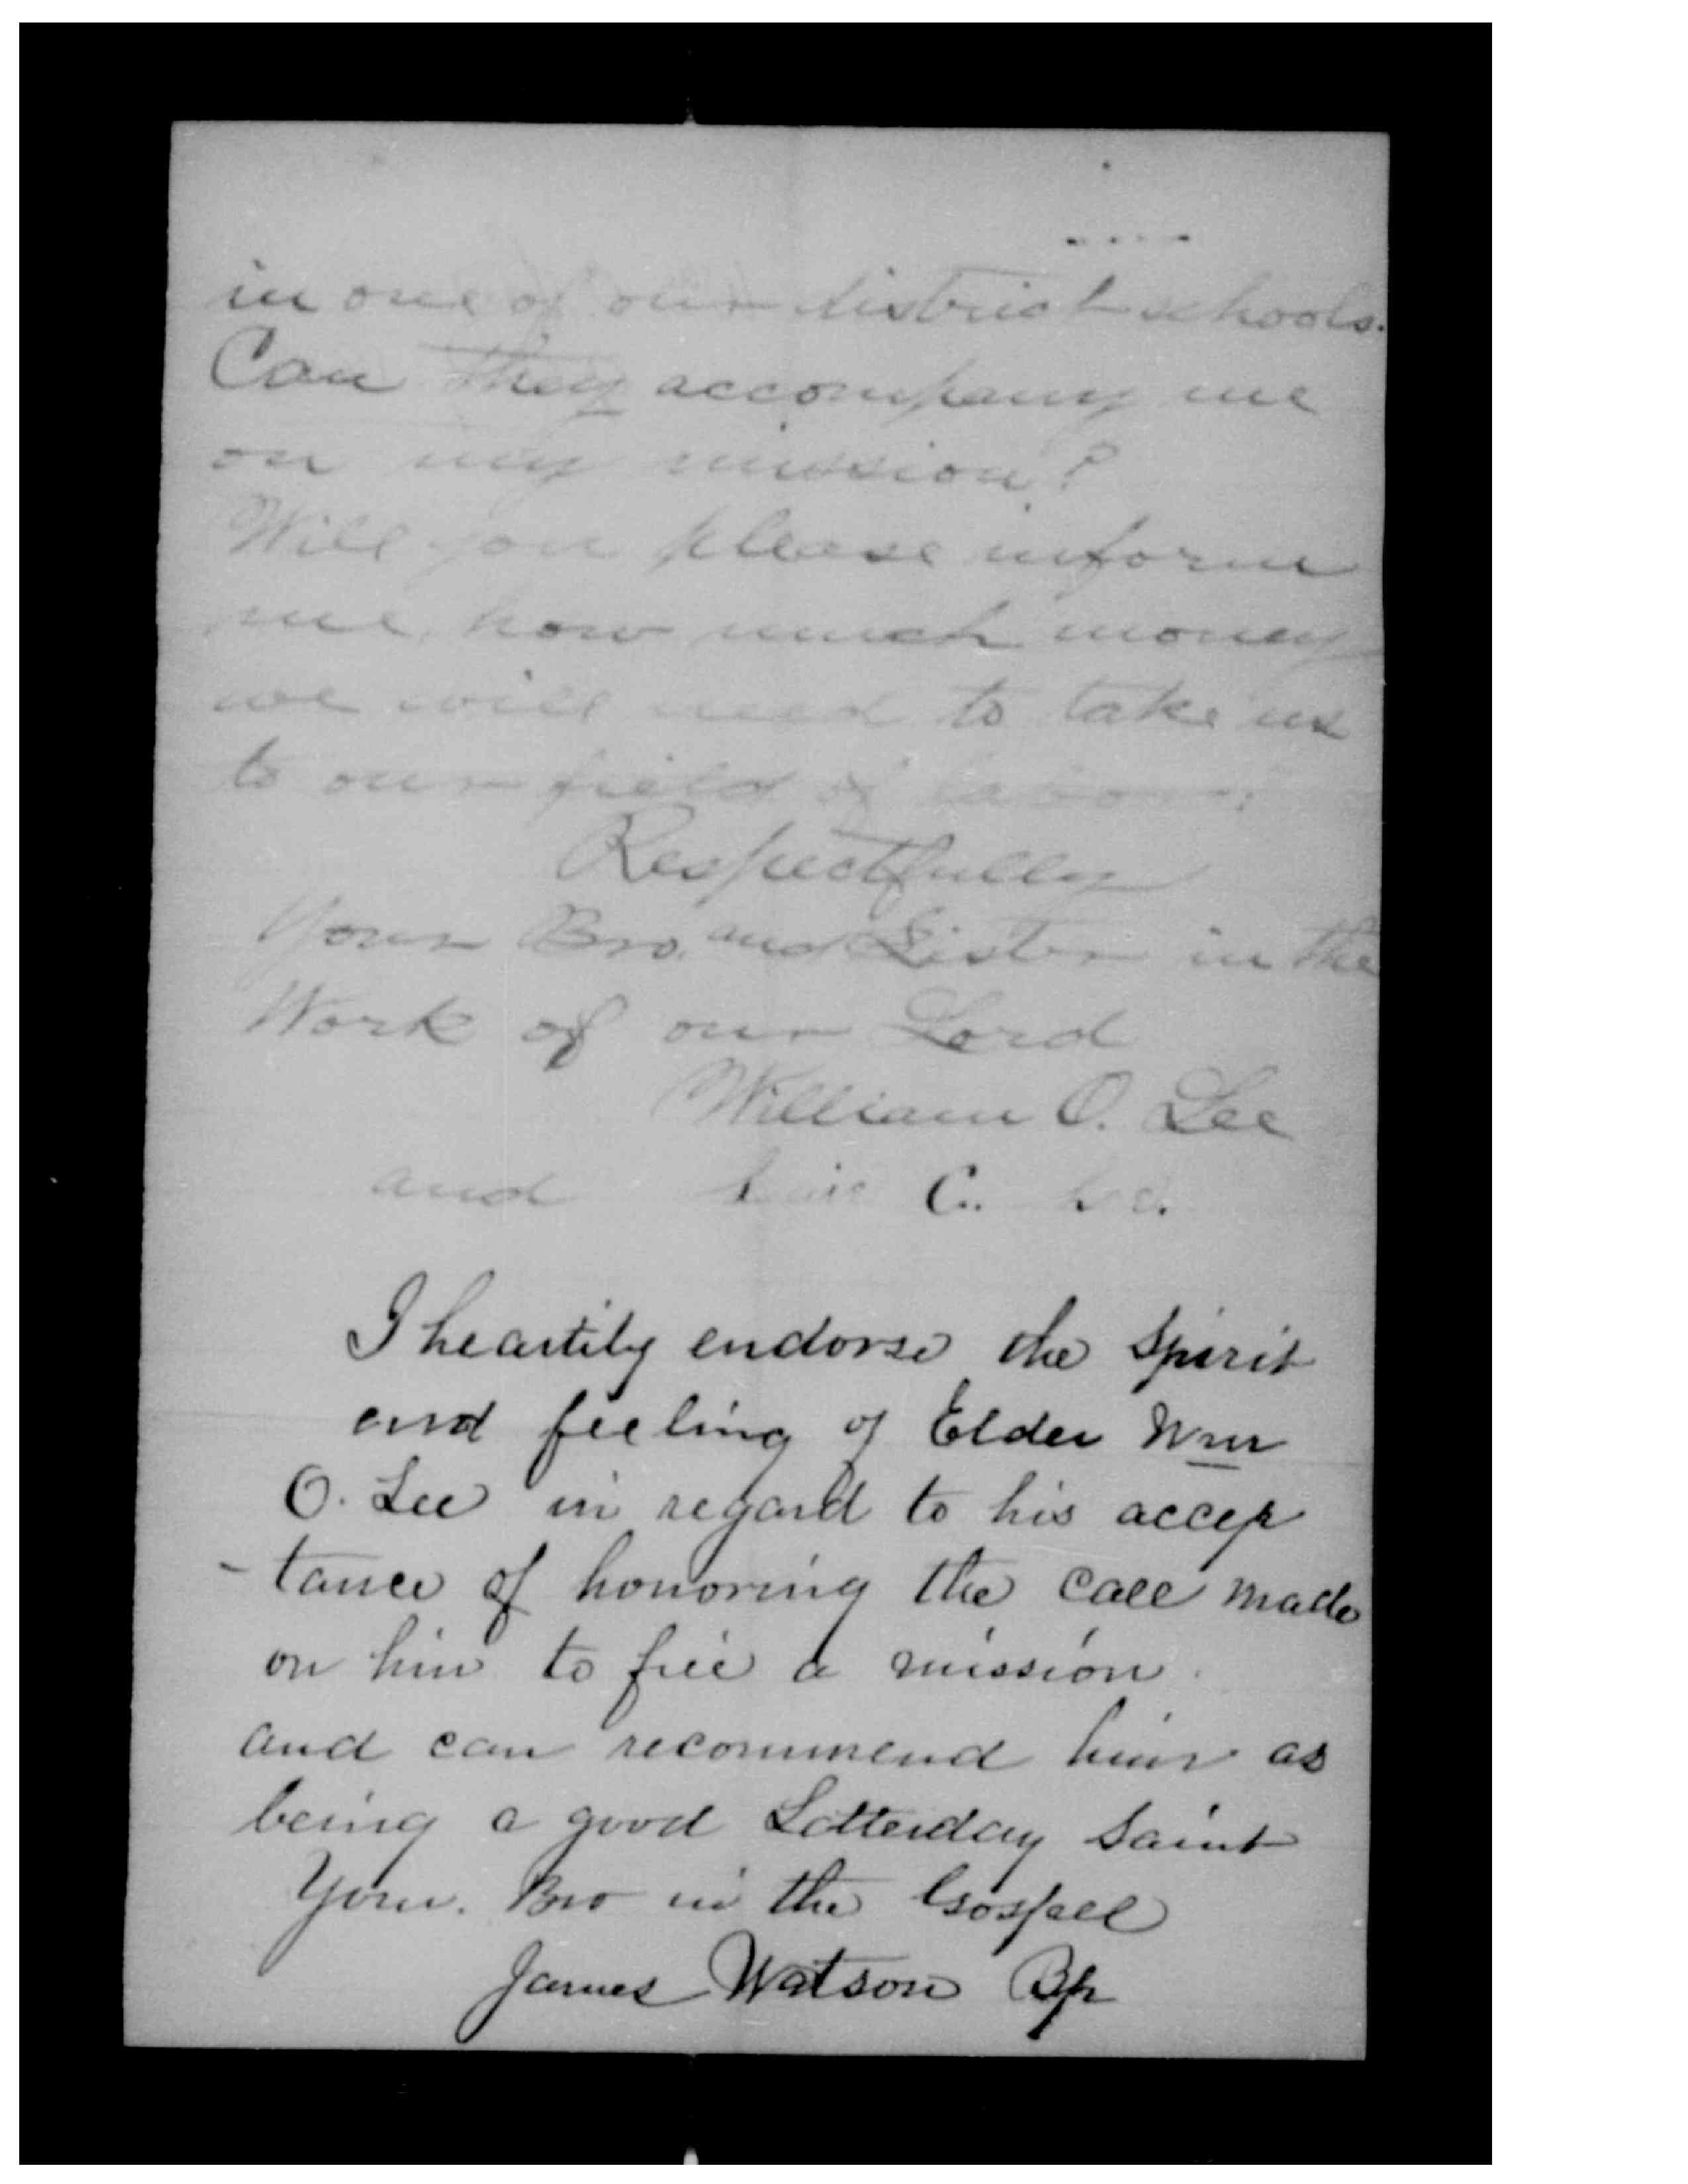 in one of our district schools.
Can they accompany me
on my mission?
Will you please inform
me, how much money
we will need to take us
to our field of labor.
Respectfully
Your Bro. and Sister in the
Work of our Lord
William O. Lee
and C. Lee.
I heartily endorse the Spirit
and feeling of Elder Wm
O. Lee in regard to his accep
-tance of honoring the call made
on him to fill a mission.
and can recommend him as
being a good Latterday Saint
Your. Bro in the Gospell
James Watson Bp